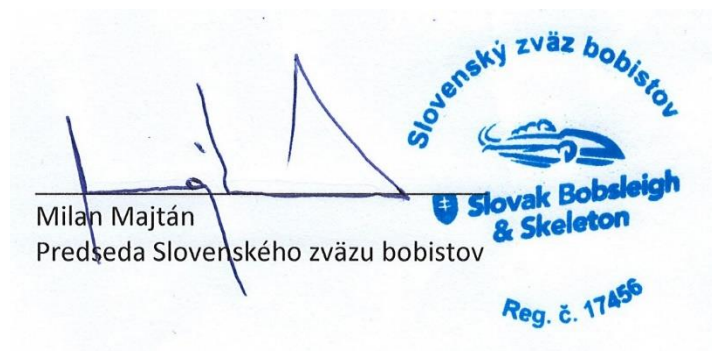 Milan Majtán
Predseda Slovenského zväzu bobistov
Slovenský zväz bobistov
Slovak Bobsleigh
& Skeleton
Reg. č. 17456